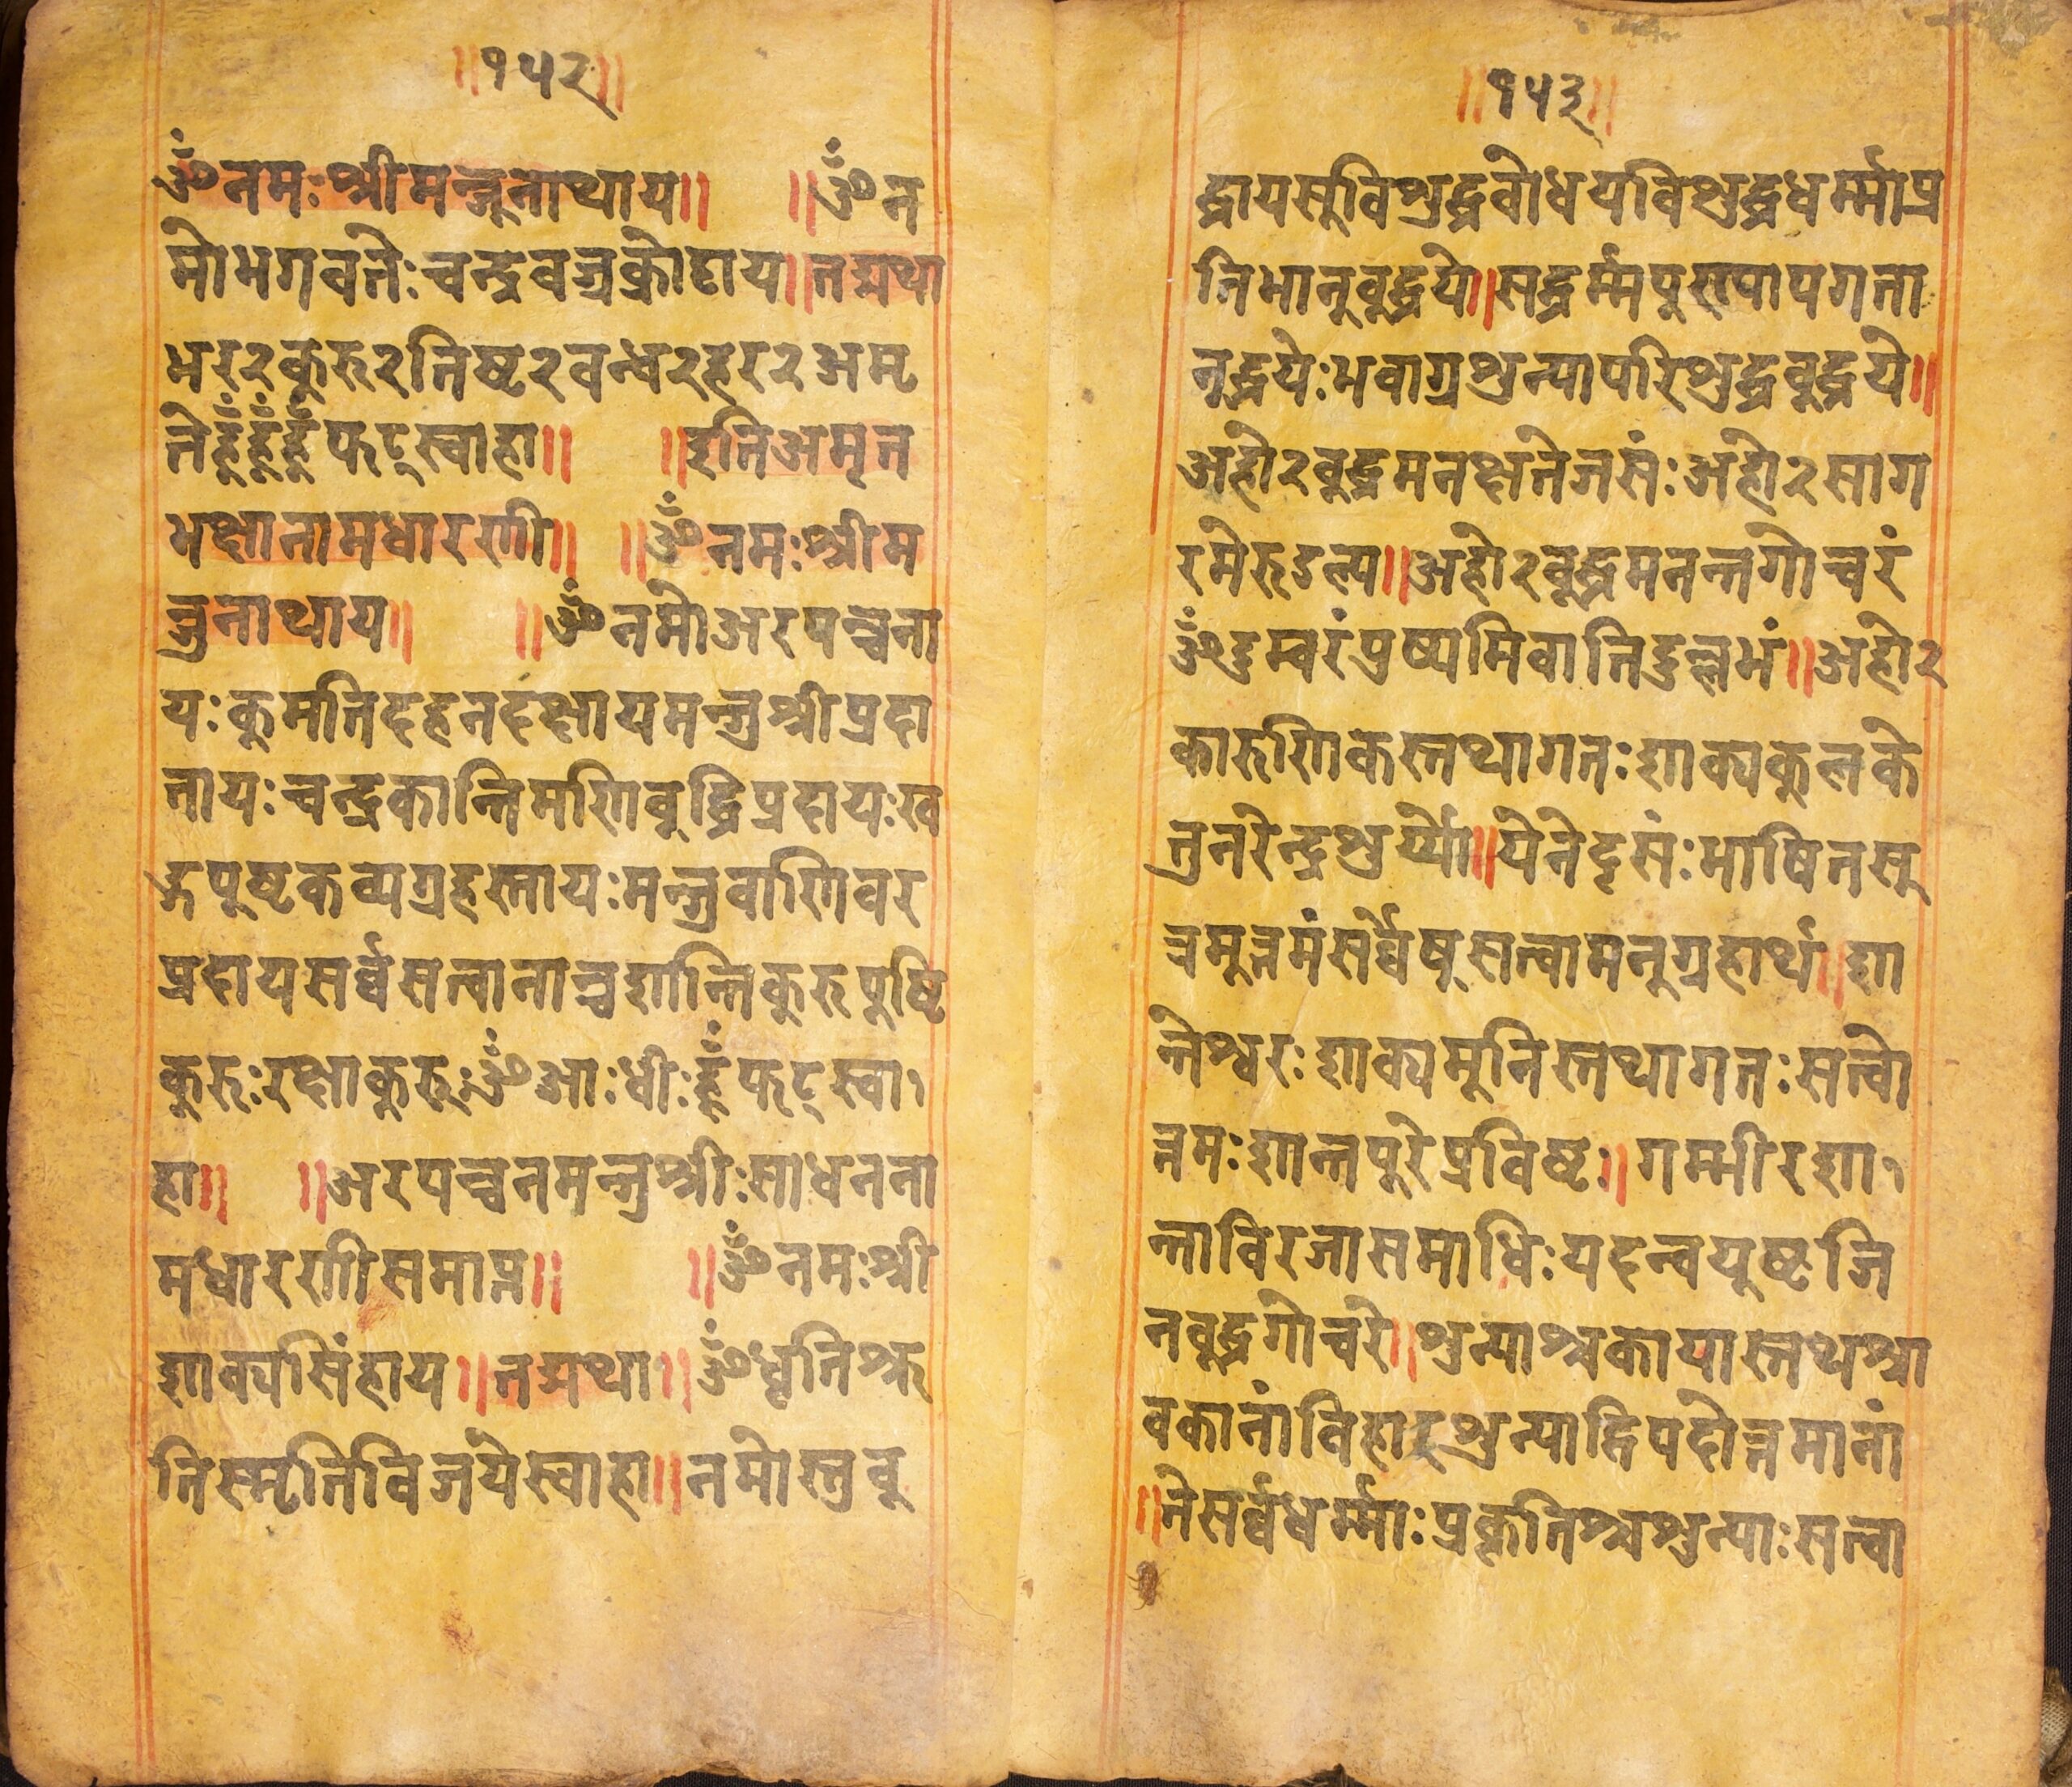 ॥१५२॥
ॐनमःश्रीमन्जूनाथाय॥ ॥ॐन
मोभगवतेःचन्द्रवज्रक्रोदाय॥तद्यथा
भर२कुरु२तिष्ट२वन्ध२हर२अमृ
तेहूँहूँहूँफट्स्वाहा॥ ॥इतिअमृत
भक्षानामधारणी॥ ॥ॐनमःश्रीम
न्जुनाथाय॥ ॥ॐनमोअरपन्चना
यःकुमतिदहनदक्षायमन्जुश्रीप्रदा
तायःचन्द्रकान्तिमणिवुद्धिप्रदायःख
ड्गपूष्टकव्यग्रहस्तायःमन्जुवाणिवर
प्रदायसर्व्वसत्वानान्चशान्तिकुरुपुष्टि
कुरुःरक्षाकुरुःॐआःधीःहूँफट्स्वा१
हा॥ ॥अरपन्चनमन्जुश्रीःसाधनना
मधारणीसमाप्त॥ ॥ॐनमःश्री
शाक्यसिंहाय॥तद्यथा॥ॐधृतिस्मृ
तिस्मृतिविजयेस्वाहा॥नमोस्तुवु
॥१५३॥
द्धायसुविशुद्धवोधयविशुद्धधर्म्माप्र
तिभानुवुद्धये॥सद्धर्म्मपुण्यापगता
नुद्धयेःभवाग्रशुन्यापरिशुद्धवुद्धये॥
अहो२वुद्धमनक्षतेजसंःअहो२साग
रमेरुडल्प॥अहो२वूद्धमनन्तगोचरं
ॐडुम्वरंप्रुष्पमिवातिदुल्लभं॥अहो२
कारुणिकस्तथागतःशाक्यकुलके
तुनरेन्द्रशुर्य्यो॥येनेदृसंःभाषितसू
त्रमूत्तमंसर्व्वेषूसत्वामनुग्रहार्थ॥शा
न्तेश्वरःशाक्यमूनिस्तथागतःसत्वो
त्तमःशान्तपूरेप्रविष्टः॥गम्भीरशा१
न्ताविरजासमाधिःयदन्चयूष्टजि
नवूद्धगोचरे॥शुन्याश्चकायास्तथश्रा
वकानांविहाद्रशुन्याद्विपदोत्तमानां
॥तेसर्व्वधर्म्माःप्रकृतिश्चशुन्याःसत्वा